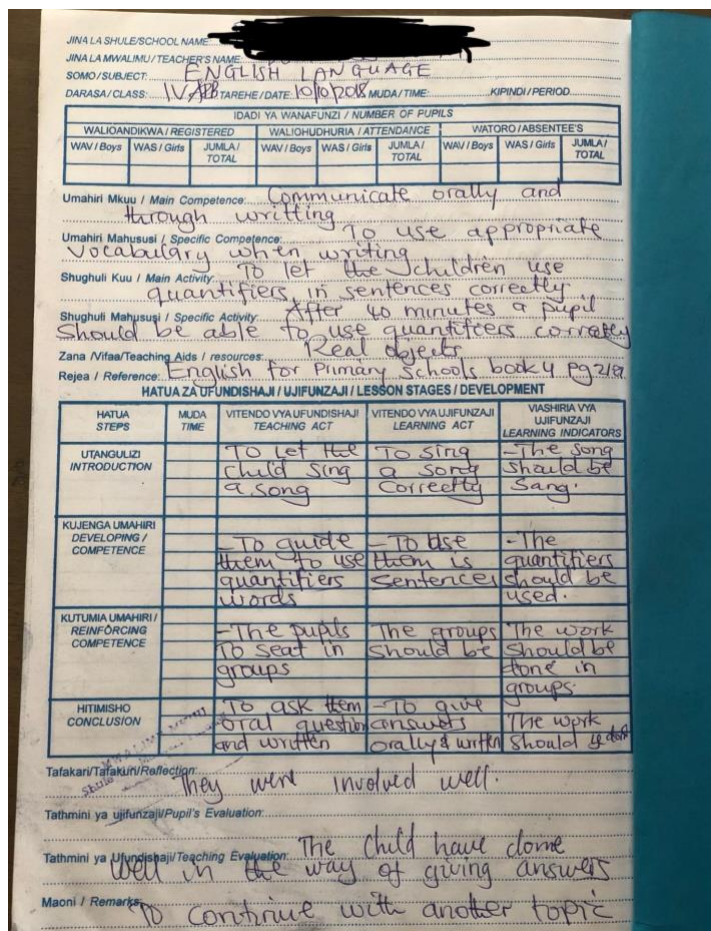 JINA LA SHULE/SCHOOL NAME:
JINA LA MWALIMU/TEACHER'S NAME:
SOMO/SUBJECT: ENGLISH LANGUAGE
DARASA/CLASS: IV TAREHE/DATE: 10/10/2018 MUDA/TIME: KIPINDI/PERIOD
IDADI YA WANAFUNZI / NUMBER OF PUPILS
WALIOANDIKWA / REGISTERED WALIOHUDHURIA / ATTENDANCE WATORO / ABSENTEE'S
WAV / Boys WAS / Girls JUMLA / TOTAL WAV / Boys WAS / Girls JUMLA / TOTAL WAV / Boys WAS / Girls JUMLA / TOTAL
Umahiri Mkuu / Main Competence: Communicate orally and
through writting
Umahiri Mahususi / Specific Competence: To use appropriate
vocabulary when writing
Shughuli Kuu / Main Activity: To let the children use
quantifiers in sentences correctly
Shughuli Mahususi / Specific Activity: After 40 minutes a pupil
should be able to use quantifiers correctly
Zana /Vifaa/Teaching Aids / resources: Real objects
Rejea / Reference: English for Primary Schools book 4 pg
HATUA ZA UFUNDISHAJI / UJIFUNZAJI / LESSON STAGES / DEVELOPMENT
HATUA STEPS MUDA TIME VITENDO VYA UFUNDISHAJI TEACHING ACT VITENDO VYA UJIFUNZAJI LEARNING ACT VIASHIRIA VYA UJIFUNZAJI LEARNING INDICATORS
UTANGULIZI To let the To sing -The song
INTRODUCTION child sing a song should be
a song correctly sang.
KUJENGA UMAHIRI
DEVELOPING / -To guide -To use -The
COMPETENCE them to use them is quantifiers
quantifiers sentences should be
words used.
KUTUMIA UMAHIRI /
REINFORCING -The pupils The groups The work
COMPETENCE To seat in should be should be
groups done in
groups.
HITIMISHO To ask them -To give
CONCLUSION oral question answers The work
and written orally & written should be done
Tafakari/Tafakuri/Reflection: They were involved well.
Tathmini ya ujifunzaji/Pupil's Evaluation:
Tathmini ya Ufundishaji/Teaching Evaluation: The child have dome
well in the way of giving answers
Maoni / Remarks: To continue with another topic